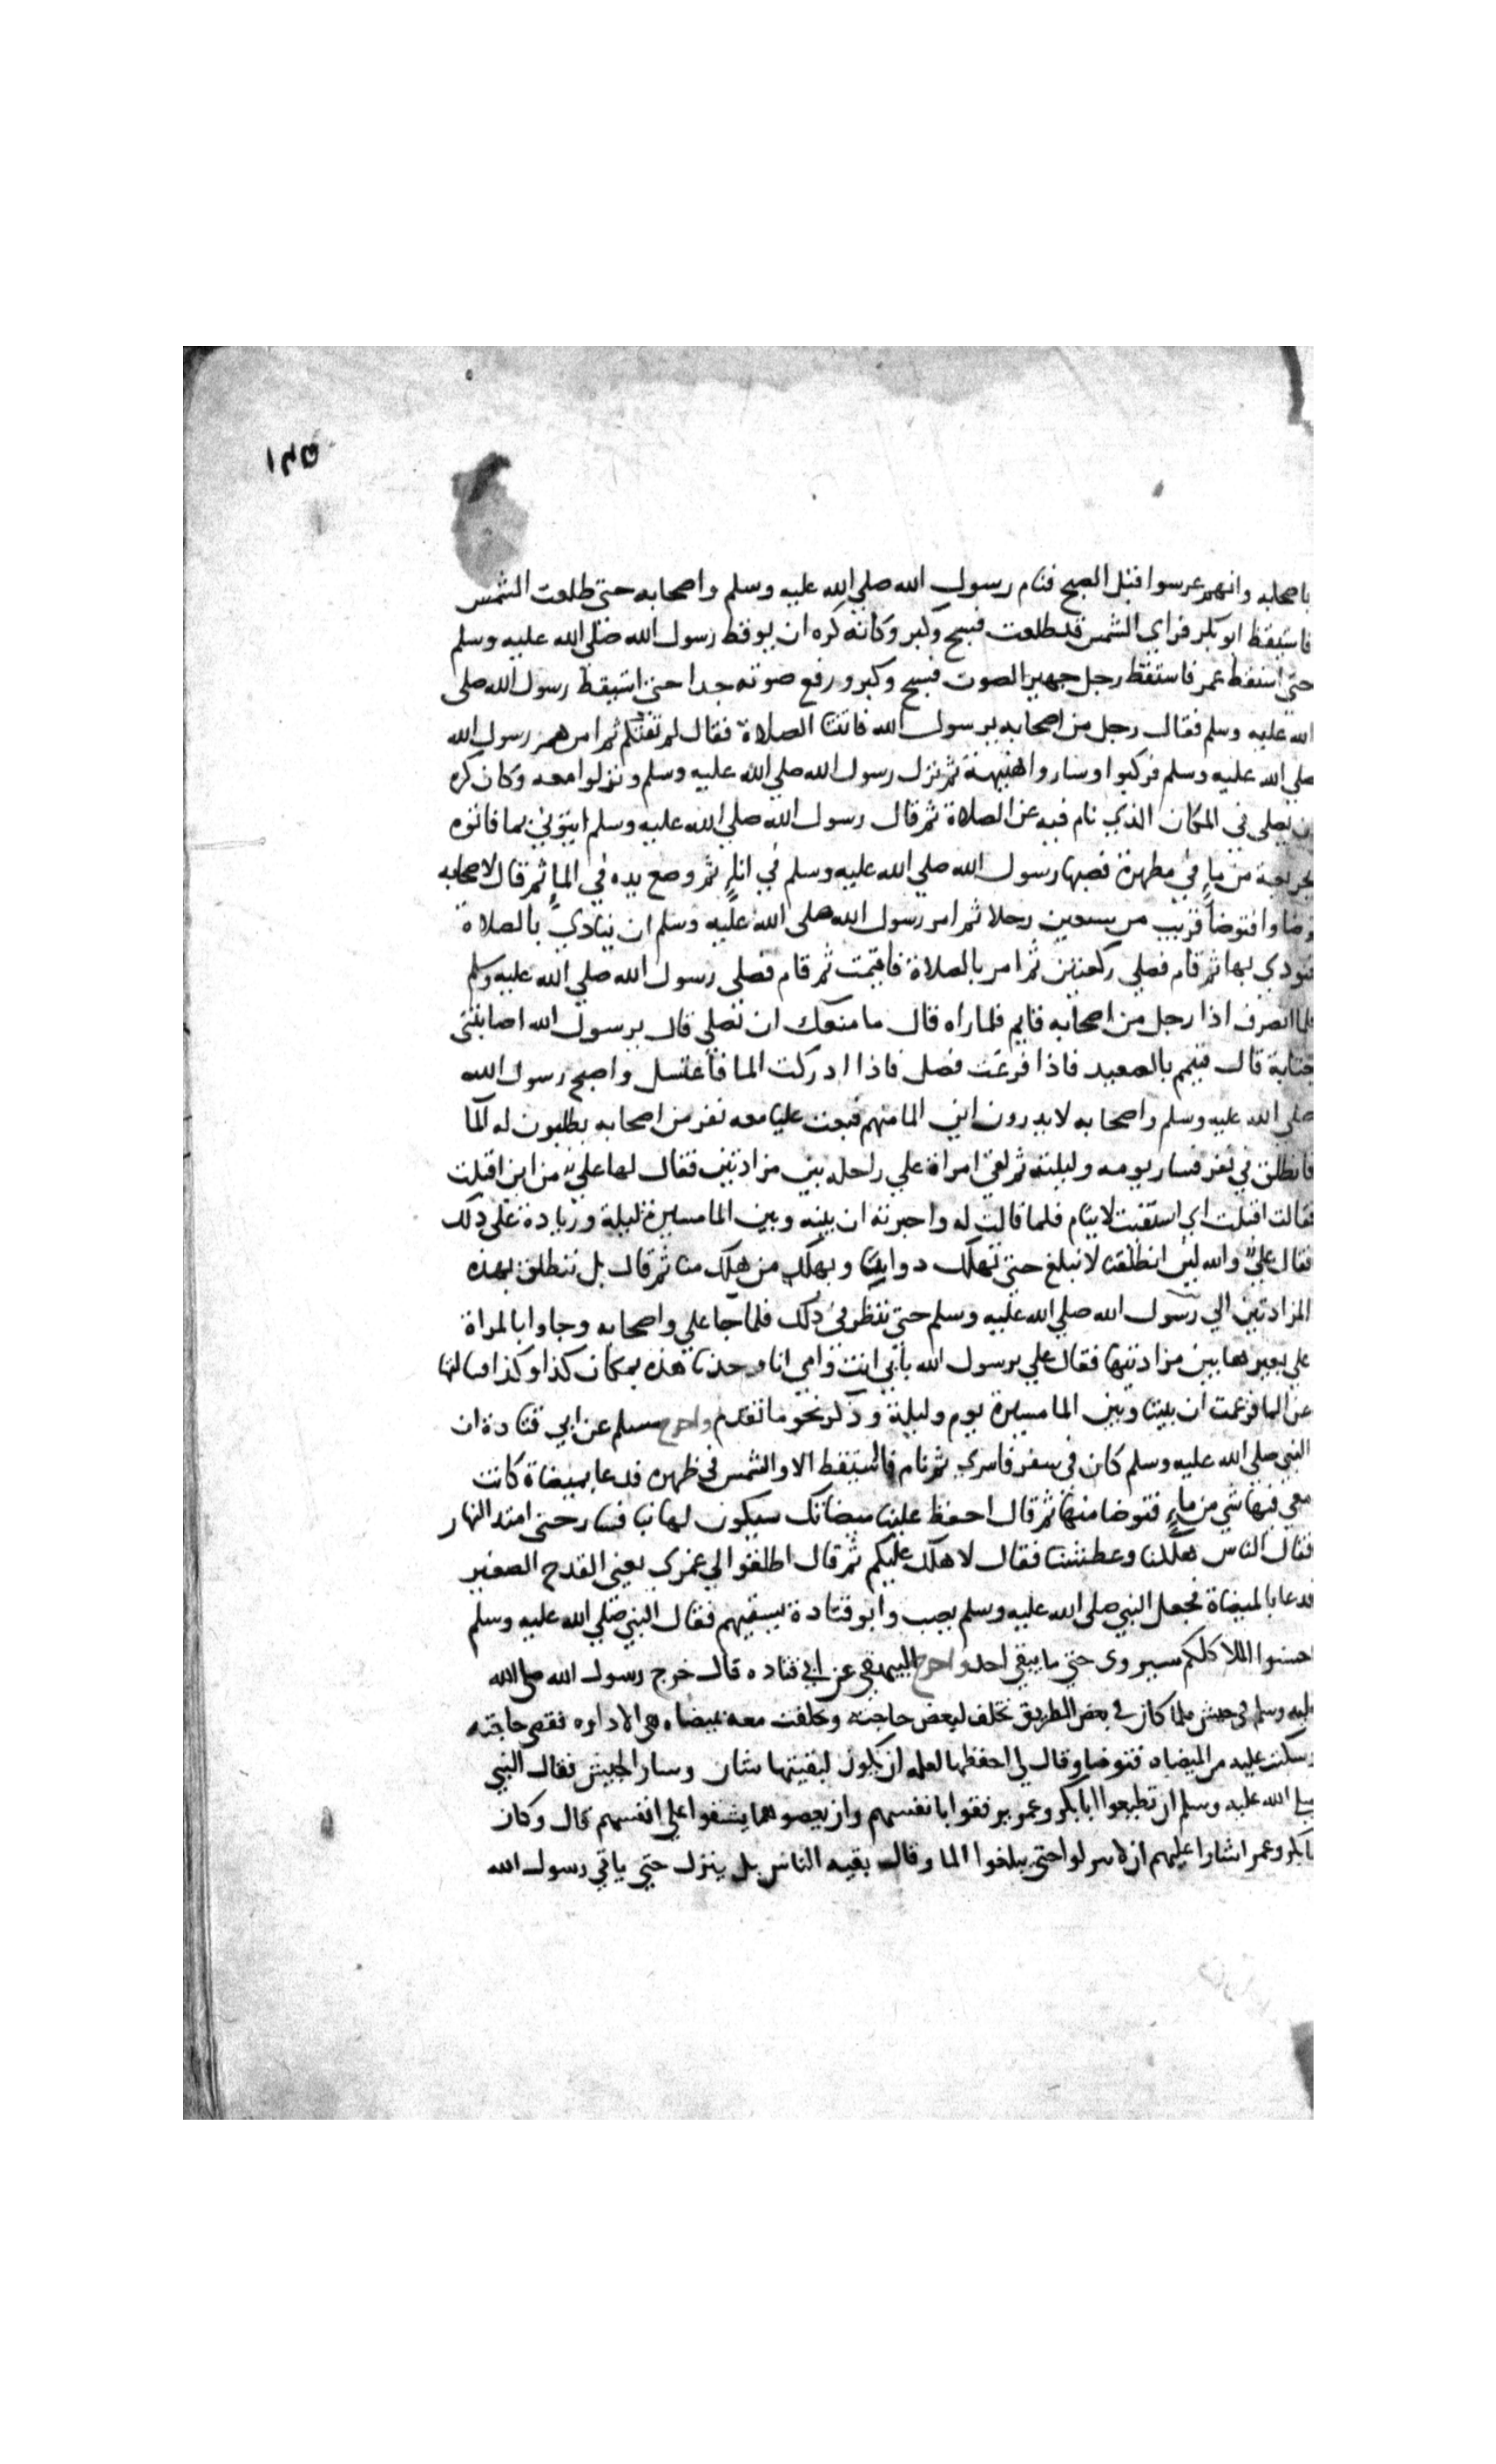 ١٣٥
باصحابه وانهم عرسوا قبل الصبح فنام رسول الله صلي الله عليه وسلم واصحابه حتي طلعت الشمس
فاستيقظ ابو بكر فراي الشمس قد طلعت فسبح وكبر وكانه كره ان يوقظ رسول الله صلي الله عليه وسلم
حتي استيقظ عمر فاستيقظ رجل جهير الصوت فسبح وكبر ورفع صوته جدا حتي استيقظ رسول الله صلي
الله عليه وسلم فقال رجل من اصحابه يرسول الله فاتتنا الصلاة فقال لم تفتكم ثم امرهم رسول الله
صلي الله عليه وسلم فركبوا وساروا هنيهة ثم نزل رسول الله صلي الله عليه وسلم ونزلوا معه وكان كره
ان يصلي في المكان الذي نام فيه عن الصلاة ثم قال رسول الله صلي الله عليه وسلم ايتوني بما فاتوه
بجريعة من ماءٍ في مطهرة فصبها رسول الله صلي الله عليه وسلم في اناءٍ ثم وضع يده في الماءِ ثم قال لاصحابه
توضاوا فتوضا قريب من سبعين رجلا ثم امر رسول الله صلي الله عليه وسلم ان ينادي بالصلاة
فنودي بها ثم قام فصلي ركعتين ثم امر بالصلاة فاقيمت ثم قام فصلي رسول الله صلي الله عليه وسلم
فلما انصرف اذا رجل من اصحابه قايم فلما راه قال ما منعك ان تصلي قال يرسول الله اصابتني
جنابة قال فتيمم بالصعيد فاذا فرغت فصل فاذا ادركت الما فاغتسل واصبح رسول الله
صلي الله عليه وسلم واصحابه لا يدرون اين الما منهم فبعث عليا معه نفر من اصحابه يطلبون له الما
فانطلق في نفر فسار يومه وليلته ثم لقي امراة علي راحلة بين مزادتين فقال لها علي من اين اقبلت
فقالت اقبلت اي استقيت لايتام فلما قالت له واخبرته ان بينه وبين الما مسيرة ليلة وزيادة علي ذلك
فقال علي والله لين انطلقنا لا نبلغ حتي تهلك دوابنا ويهلك من هلك منا ثم قال بل ننطلق بهذه
المزادتين الي رسول الله صلي الله عليه وسلم حتي ننظر في ذلك فلما جا علي واصحابه وجاوا بالمراة
علي بعيرها بين مزادتيها فقال علي يرسول الله بابي انت وامي انا وجدنا هذه بمكان كذا وكذا فسالتها
عن الما فزعمت ان بيننا وبين الما مسيرة يوم وليلة وذكر نحو ما تقدم واخرج مسلم عن ابي قتادة ان
النبي صلي الله عليه وسلم كان في سفر فاسري ثم نام فما استيقظ الا والشمس في ظهره فدعا بميضاة كانت
معي فيها شي من ماءٍ فتوضا منها ثم قال احفظ علينا ميضاتك سيكون لها نبا فسار حتي امتد النهار
فقال الناس هلكنا وعطشنا فقال لا هلك عليكم ثم قال اطلقوا لي غمري يعني القدح الصغير
فدعا بالميضاة فجعل النبي صلي الله عليه وسلم يصب وابو قتادة يسقيهم فقال النبي صلي الله عليه وسلم
احسنوا الملا كلكم سيروى حتي ما بقي احد واخرج البيهقي عن ابي قتاده قال خرج رسول الله صلى الله
عليه وسلم في جيش فلما كان في بعض الطريق تخلف لبعض حاجته وتخلفت معه بميضاه هي الاداوه فقضى حاجته
وسكبت عليه من الميضاه فتوضا وقال لي احفظها لعله ان يكون لبقيتها شان وسار الجيش فقال النبي
صلى الله عليه وسلم ان تطيعوا ابا بكر وعمر يرفقوا بانفسهم وان يعصوهما يشقوا علي انفسهم قال وكان
ابا بكر وعمر اشارا عليهم ان لا ينزلوا حتى يبلغوا الما وقال بقيه الناس بل ينزل حتي ياتي رسول الله